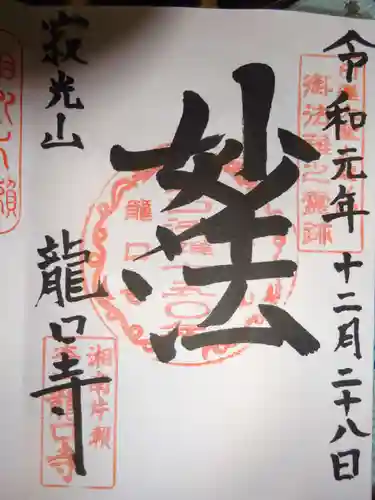 令和元年十二月二十八日
御法難之霊跡
妙法
龍口寺
寂光山
龍口寺
湘南片瀬
龍口寺